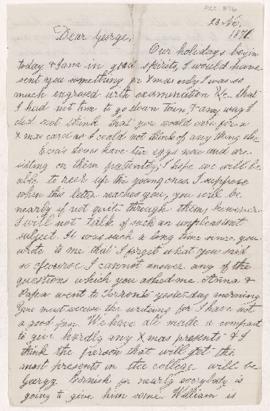 23 No.
1876
Dear George,
Our holidays begin
today & I am in good spirits, I would have
sent you something for Xmas only I was so
much engrossed with examination &c. that
I had not time to go down town & any way I
did not think that you would care for a
Xmas card or I could not think of any thing else
doves have six eggs now and are
sitting on them patiently, I hope we will be
able to rear up the young ones. I suppose
when this letter reaches you, you will be
nearly if not quite through them, however
I will not talk of such an unpleasant
subject. It was such a long time since you
wrote to me that I forget what you said
so of course I cannot answer any of the
questions which you asked me.
Papa went to Toronto yesterday morning
You must excuse the writing for I have not
a good pen. We have all made a compact
to give hardly any Xmas presents & I
think the person that will get the
most presents in the college will be
for nearly everybody is
going to give him some. William is